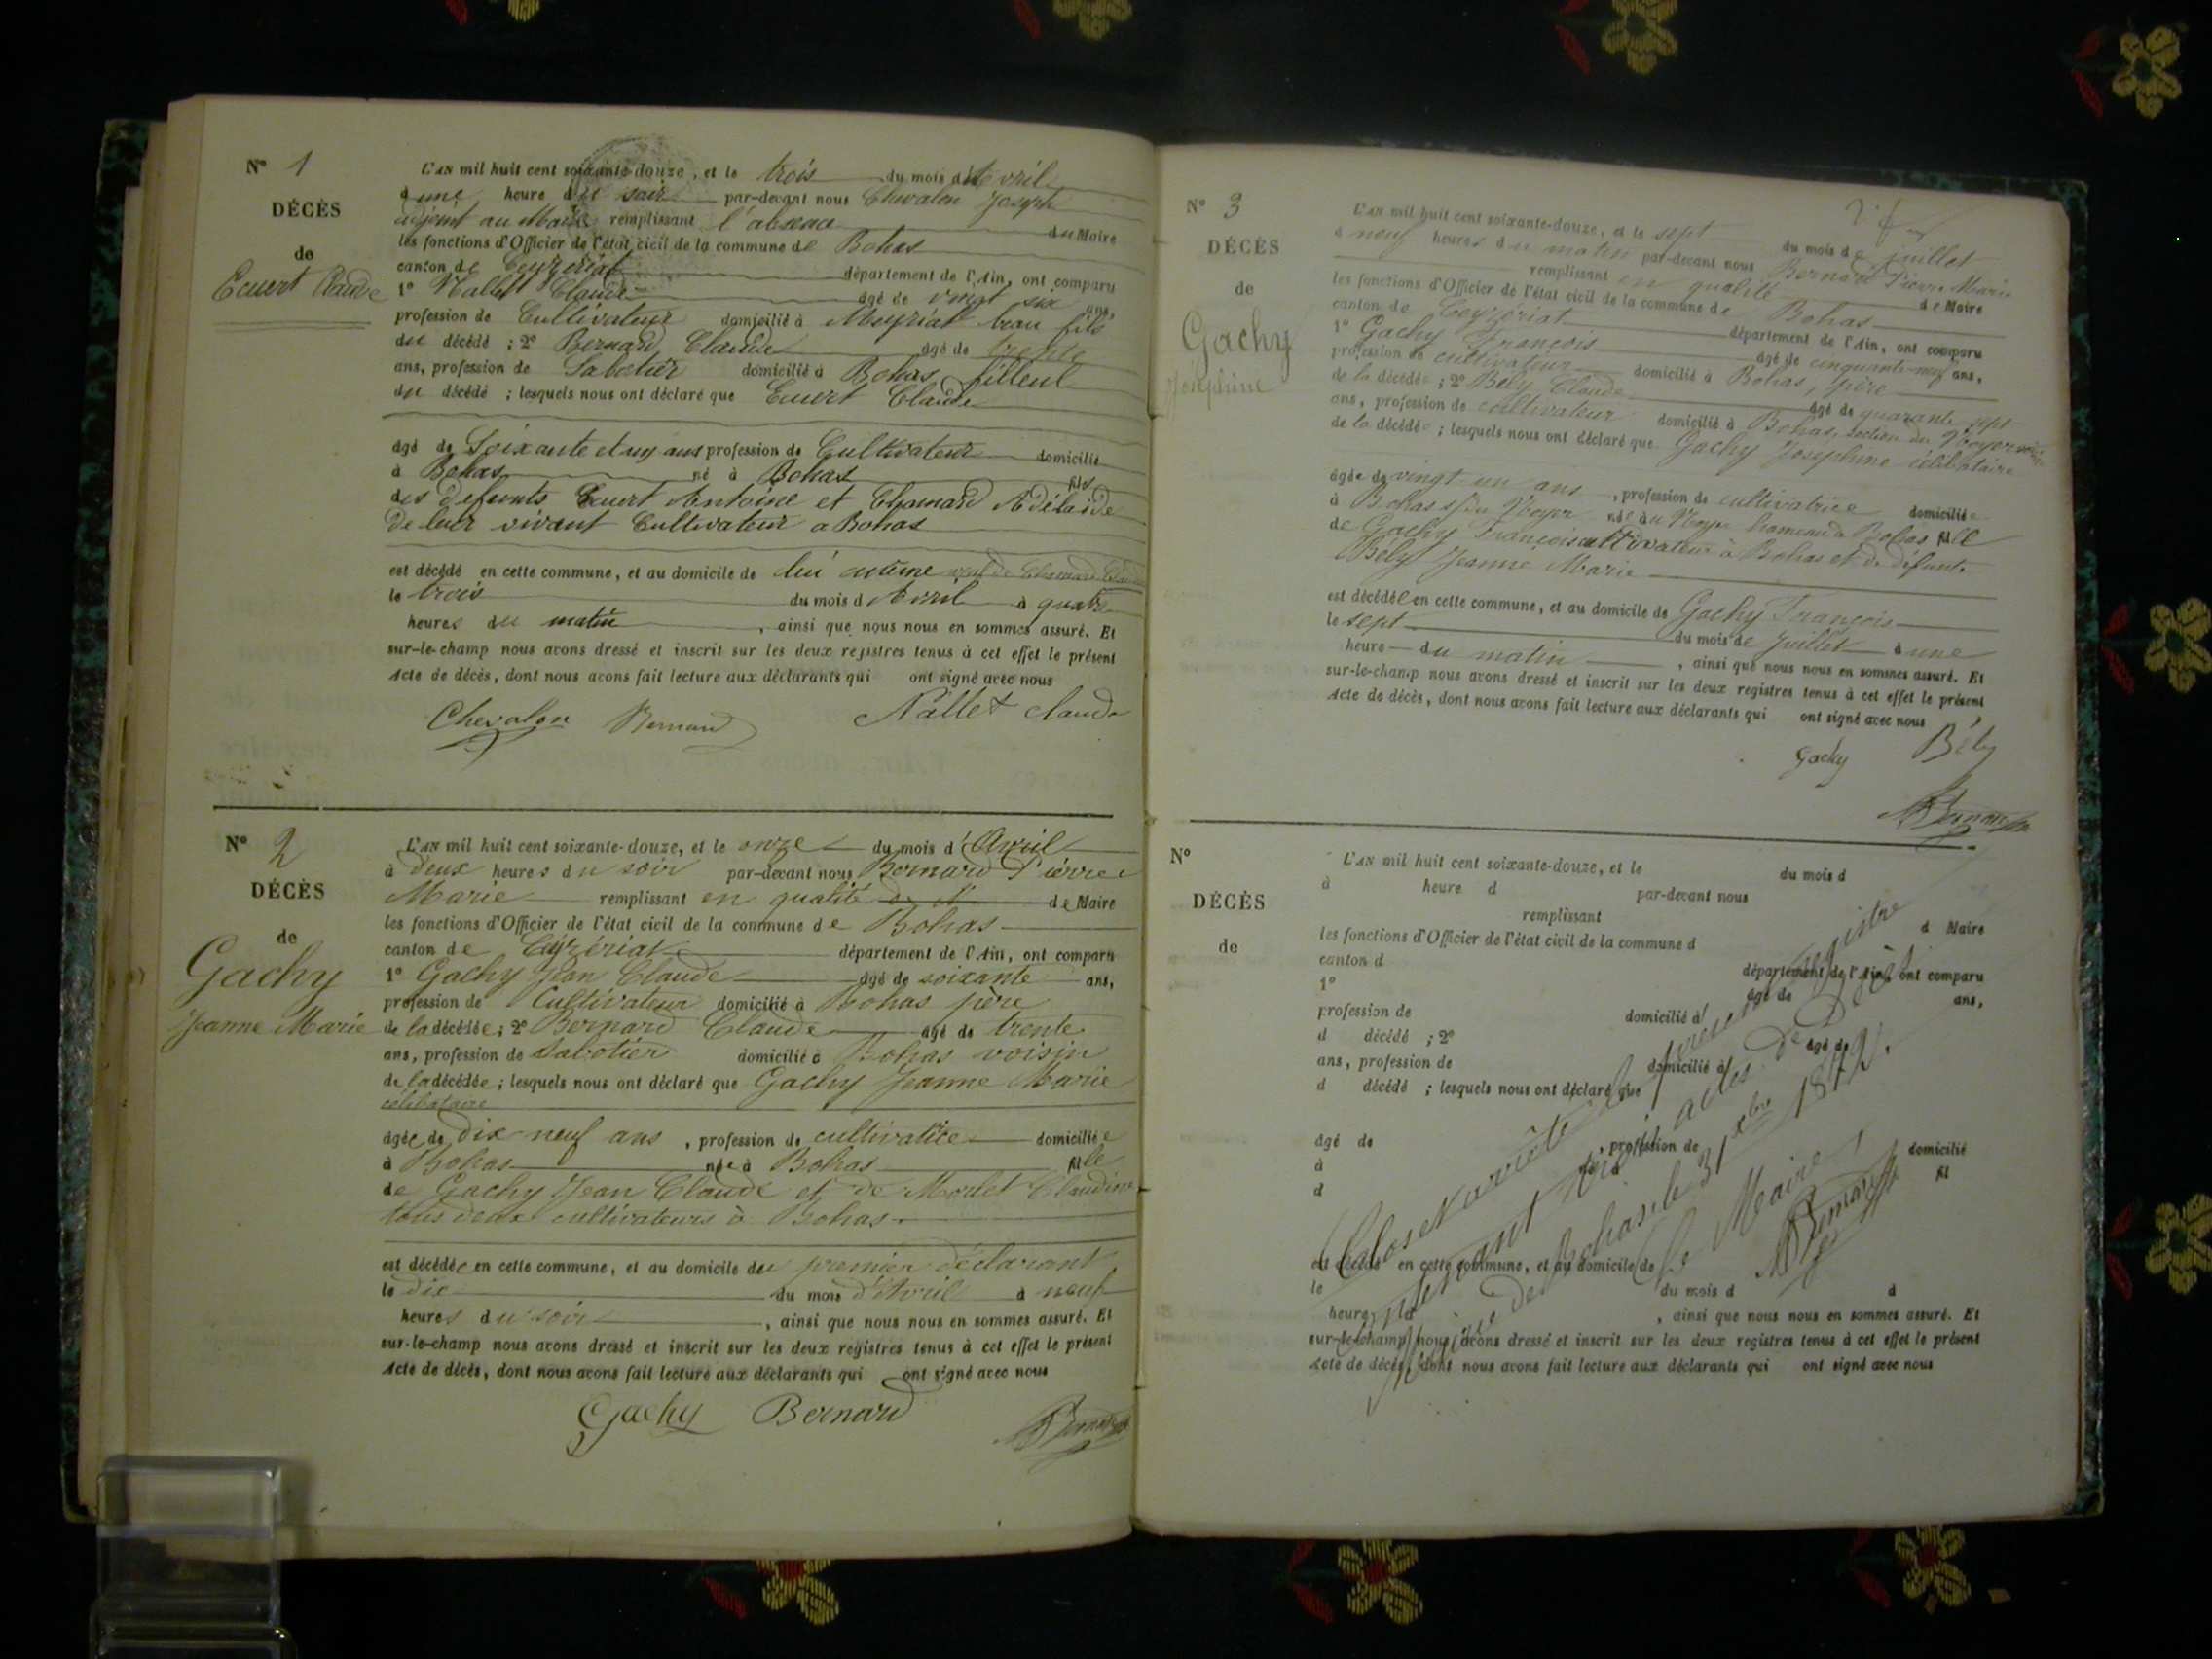 N° 1
DÉCÈS
de
Ecuert Claude
L'AN mil huit cent soixante-douze, et le trois du mois d'Avril
à une heure du soir par-devant nous Chevalon Joseph
adjoint au Maire remplissant l'absence du Maire
les fonctions d'Officier de l'état civil de la commune de Bohas
canton de Ceyzériat département de l'Ain, ont comparu
1° Nallet Claude âgé de vingt six ans,
profession de Cultivateur domicilié à Meyriat beau fils
du décédé ; 2° Bernard Claude âgé de trente
ans, profession de Sabotier domicilié à Bohas filleul
du décédé ; lesquels nous ont déclaré que Ecuert Claude
âgé de Soixante et un ans profession de Cultivateur domicilié
à Bohas né à Bohas fils
des defunts Ecuert Antoine et Chamard Adélaïde
De leur vivant Cultivateur a Bohas
est décédé en cette commune, et au domicile de lui même
le trois du mois d'Avril à quatre
heures du matin , ainsi que nous nous en sommes assuré. Et
sur-le-champ nous avons dressé et inscrit sur les deux registres tenus à cet effet le présent
Acte de décès, dont nous avons fait lecture aux déclarants qui ont signé avec nous
Chevalon Bernard Nallet Claude
N° 2
DÉCÈS
de
Gachy
Jeanne Marie
L'AN mil huit cent soixante-douze, et le onze du mois d'Avril
à deux heures du soir par-devant nous Bernard Pierre
Marie remplissant en qualité de Maire
les fonctions d'Officier de l'état civil de la commune de Bohas
canton de Ceyzériat département de l'Ain, ont comparu
1° Gachy Jean Claude âgé de soixante ans,
profession de Cultivateur domicilié à Bohas père
de la décédée ; 2° Bernard Claude âgé de trente
ans, profession de Sabotier domicilié à Bohas voisin
de la décédée ; lesquels nous ont déclaré que Gachy Jeanne Marie
célibataire
âgée de dix-neuf ans , profession de cultivatrice domiciliée
à Bohas née à Bohas fille
de Gachy Jean Claude et de Morlet Claudine
tous deux cultivateurs à Bohas
est décédée en cette commune, et au domicile du premier déclarant
le dix du mois d'Avril à neuf
heures du soir , ainsi que nous nous en sommes assuré. Et
sur-le-champ nous avons dressé et inscrit sur les deux registres tenus à cet effet le présent
Acte de décès, dont nous avons fait lecture aux déclarants qui ont signé avec nous
Gachy Bernard Bernard
N° 3
DÉCÈS
de
Gachy
Joséphine
L'AN mil huit cent soixante-douze, et le sept du mois de juillet
à neuf heures du matin par-devant nous Bernard Pierre Marie
remplissant en qualité de Maire
les fonctions d'Officier de l'état civil de la commune de Bohas
canton de Ceyzériat département de l'Ain, ont comparu
1° Gachy François âgé de cinquante-neuf ans,
profession de cultivateur domicilié à Bohas, père
de la décédée ; 2° Bély Claude âgé de quarante sept
ans, profession de cultivateur domicilié à Bohas, section du Noyer
de la décédée ; lesquels nous ont déclaré que Gachy Joséphine célibataire
âgée de vingt un ans , profession de cultivatrice domiciliée
à Bohas s/ du Noyer née au Noyer hameau à Bohas fille
de Gachy François cultivateur à Bohas et de défunte
Bély Jeanne Marie
est décédée en cette commune, et au domicile de Gachy François
le sept du mois de Juillet à une
heure du matin , ainsi que nous nous en sommes assuré. Et
sur-le-champ nous avons dressé et inscrit sur les deux registres tenus à cet effet le présent
Acte de décès, dont nous avons fait lecture aux déclarants qui ont signé avec nous
Gachy Bély
Bernard
N°
DÉCÈS
de
L'AN mil huit cent soixante-douze, et le du mois d
à heure d par-devant nous
remplissant d Maire
les fonctions d'Officier de l'état civil de la commune d
canton d département de l'Ain, ont comparu
1° âgé de ans,
profession de domicilié à
d décédé ; 2° âgé de
ans, profession de domicilié à
d décédé ; lesquels nous ont déclaré que
âgé de , profession de domicilié
à né à fil
d
est décédé en cette commune, et au domicile de
le du mois d à
heure d , ainsi que nous nous en sommes assuré. Et
sur-le-champ nous avons dressé et inscrit sur les deux registres tenus à cet effet le présent
Acte de décès, dont nous avons fait lecture aux déclarants qui ont signé avec nous
Clos et arrêté le présent registre
contenant trois actes de Décès
Bohas, le 31 Xbre 1872.
Le Maire,
Bernard